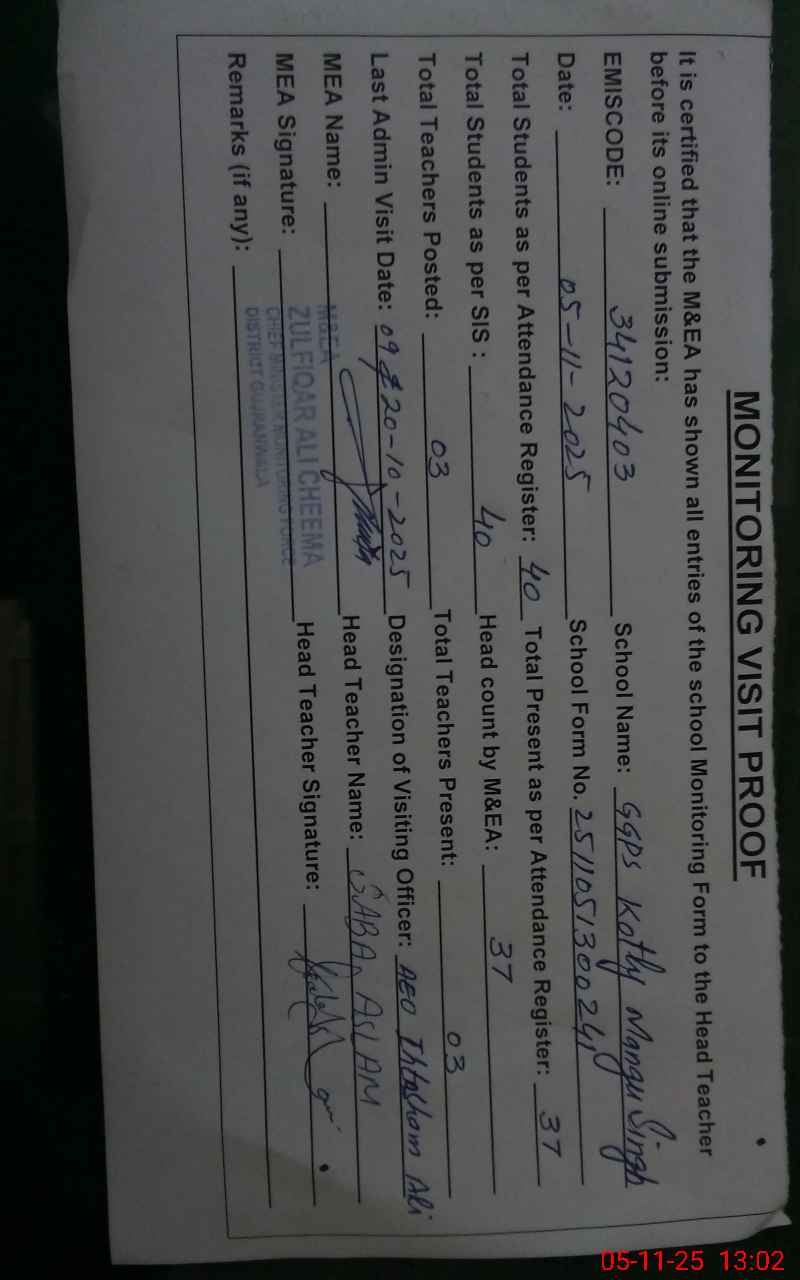 MONITORING VISIT PROOF
It is certified that the M&EA has shown all entries of the school Monitoring Form to the Head Teacher
before its online submission:
EMISCODE: 34120403 School Name: GGPS Kotly Mangu Singh
Date: 05-11-2025 School Form No. 251105130024
Total Students as per Attendance Register: 40 Total Present as per Attendance Register: 37
Total Students as per SIS : 40 Head count by M&EA: 37
Total Teachers Posted: 03 Total Teachers Present: 03
Last Admin Visit Date: 20-10-2025 Designation of Visiting Officer: AEO Ihtasham Ali
MEA Name: Head Teacher Name: SABA ASLAM
MEA Signature: Head Teacher Signature:
Remarks (if any):
M&EA
ZULFIQAR ALI CHEEMA
CHIEF MINISTER MONITORING FORCE
DISTRICT GUJRANWALA
05-11-25 13:02